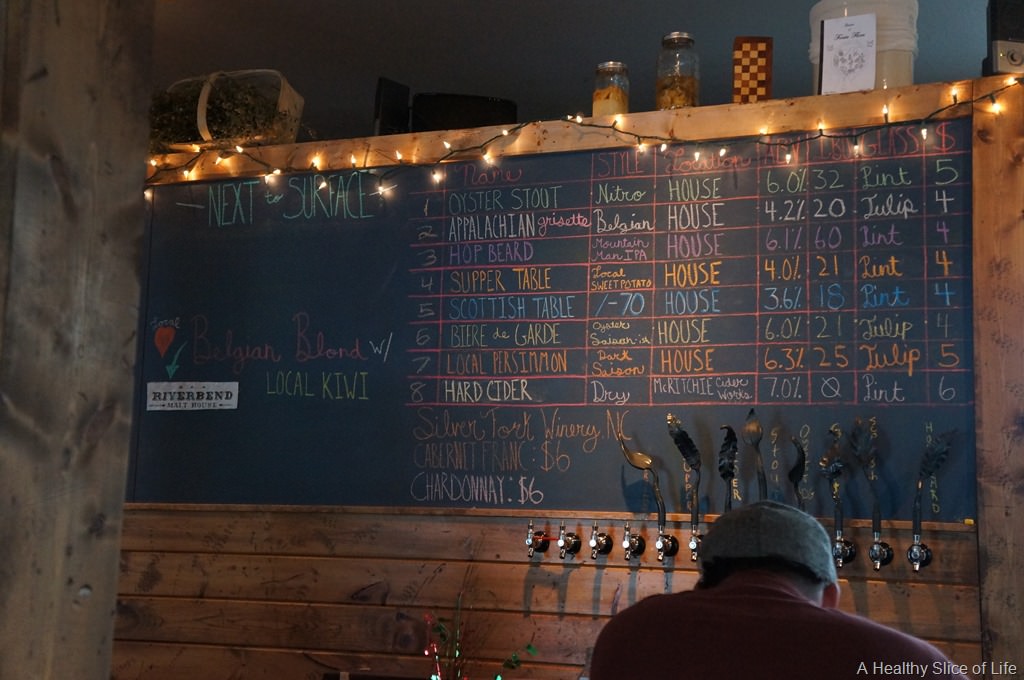 NEXT to SURFACE
Local
RIVERBEND
MALT HOUSE
Belgian Blond w/
LOCAL KIWI
Name STYLE Location IBU GLASS $
1 OYSTER STOUT Nitro HOUSE 6.0% 32 Pint 5
2 APPALACHIAN grisette Belgian HOUSE 4.2% 20 Tulip 4
3 HOP BEARD Mountain Man IPA HOUSE 6.1% 60 Pint 4
4 SUPPER TABLE Local SWEET POTATO HOUSE 4.0% 21 Pint 4
5 SCOTTISH TABLE /-70 HOUSE 3.6% 18 Pint 4
6 BIERE de GARDE Oyster HOUSE 6.0% 21 Tulip 4
7 LOCAL PERSIMMON Dark Saison HOUSE 6.3% 25 Tulip 5
8 HARD CIDER Dry McRITCHIE Cider Works 7.0% Pint 6
Silver Fork Winery, NC
CABERNET FRANC: $6
CHARDONNAY: $6
A Healthy Slice of Life